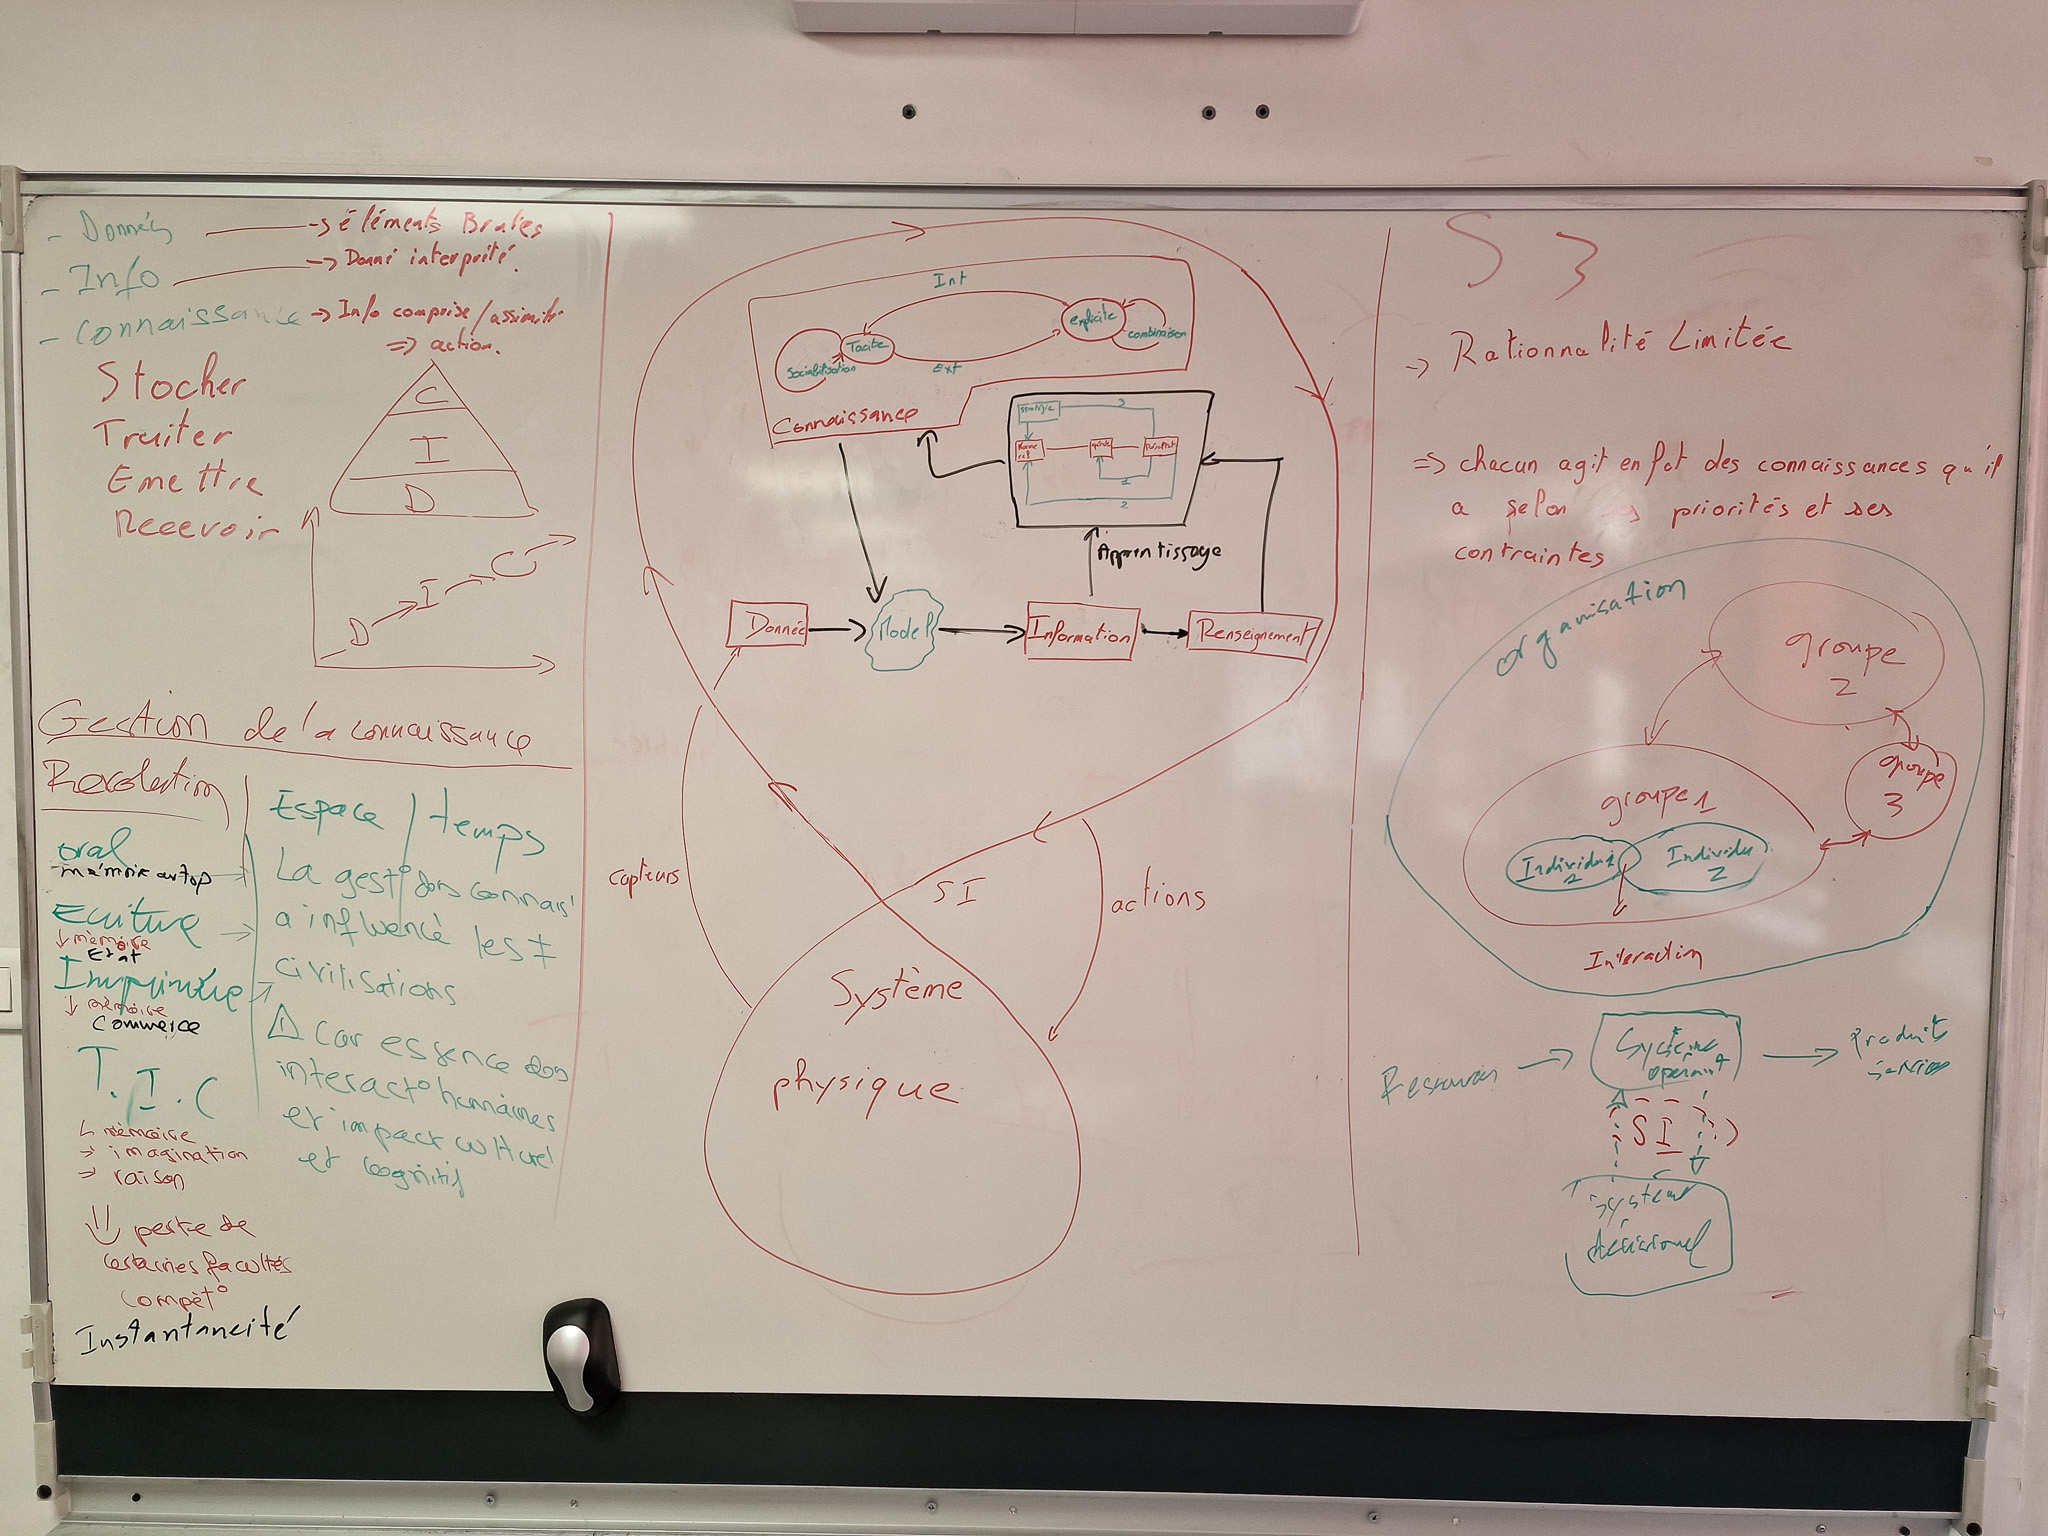 - Données → éléments Brutes
- Info → Donné interprité.
- Connaissance → Info comprise/assimilé
=> action.
Stocher
Truiter
Emettre
Recevoir
C
I
D
D → I → C →
Gestion de la connaissance
Revolution
oral
Ecriture
↓ mémoire
Etat
Imprimérie
↓ mémoire
Commerce
T.I.C
↳ mémoire
→ imagination
→ raison
perte de
certaines facultés
compét°
Instantaneité
Espace / temps
La gest° des connais'
a influencé les ≠
civilisations
⚠ Car essence des
interact° humaines
et impact culturel
et cognitif
Int
explicite
combinaison
Tacite
Socialisation
Ext
Connaissance
Stratégie
3
Résultat
1
2
Apprentissage
Donnée
Model
Information
Renseignement
capteurs
SI
actions
Système
physique
S3
→ Rationnalité Limitée
=> chacun agit en fct des connaissances qu'il
a selon ses priorités et ses
contraintes
organisation
groupe
2
groupe
3
groupe 1
Individu
2
Individu
2
Interaction
Ressources
Système
operant
Produits
services
SI
système
décisionel